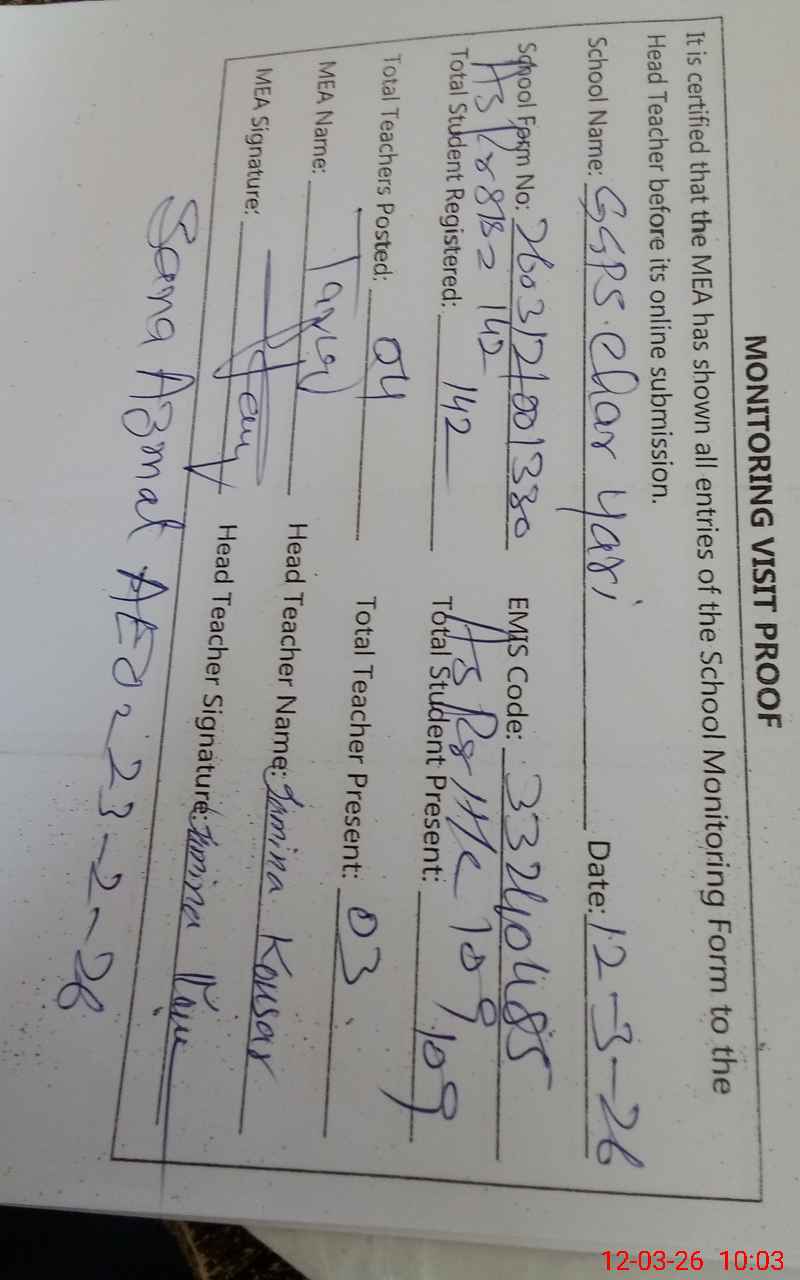 MONITORING VISIT PROOF
It is certified that the MEA has shown all entries of the School Monitoring Form to the
Head Teacher before its online submission.
School Name: GGPS. Char Yari Date: 12-3-26
School Form No: 260312001330 EMIS Code: 33240485
142 109
Total Student Registered: 142 Total Student Present: 109
Total Teachers Posted: 04 Total Teacher Present: 03
MEA Name: Head Teacher Name: Kousar
MEA Signature: Head Teacher Signature:
Sana Azmat AEO 23-2-26
12-03-26 10:03